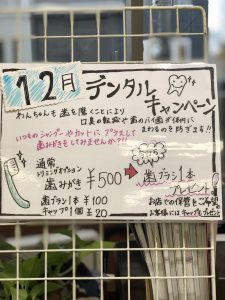 12月 デンタル
キャンペーン
わんちゃんも歯を磨くことにより
口臭の軽減や歯のバイ菌が体内に
まわるのを防ぎます!!
いつものシャンプーやカットにプラスして
歯みがきもしてみませんか?!!
通常
トリミングオプション
歯みがき ¥500 → 歯ブラシ1本
プレゼント!
歯ブラシ1本 ¥100
キャップ1個 ¥20
お店での保管をご希望の
お客様にはキャップもプレゼント